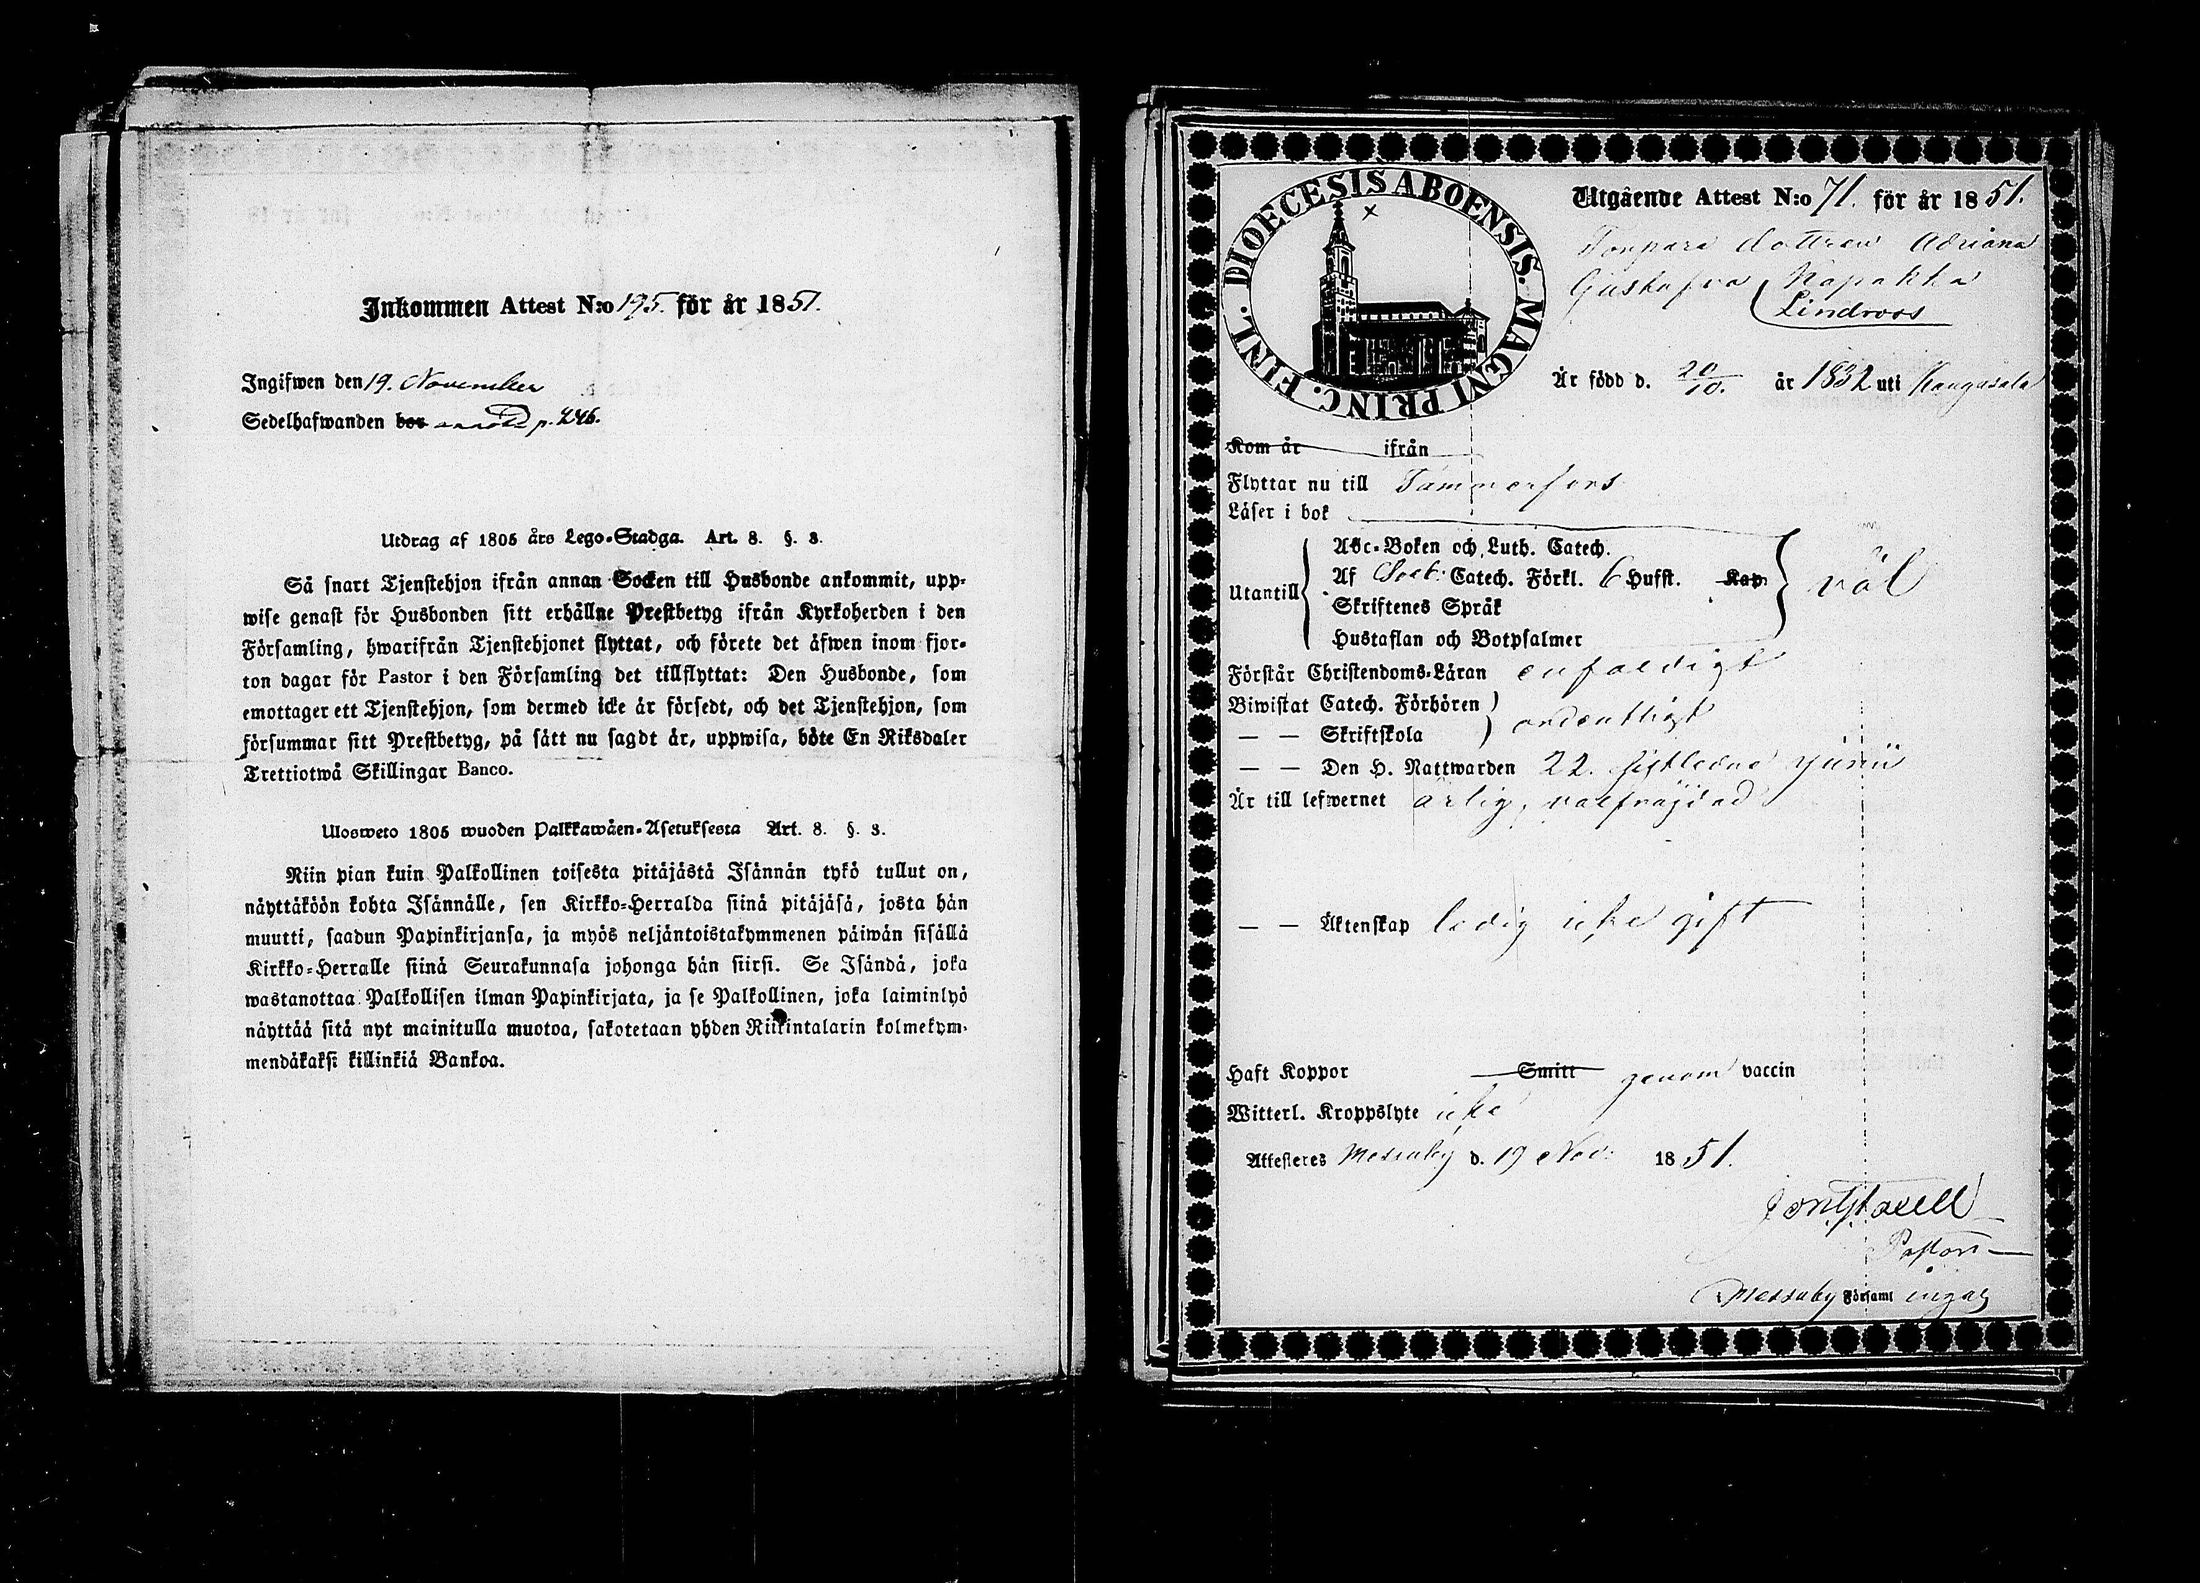 Inkommen Attest N:o 195. för år 1851.
Ingifwen den 19. November
Sedelhafwanden bor p. 446.
Utdrag af 1805 års Lego-Stadga. Art. 8. §. 3.
Så snart Tjenstehjon ifrån annan Socken till Husbonde ankommit, upp-
wise genast för Husbonden sitt erhållne Prestbetyg ifrån Kyrkoherden i den
Församling, hwarifrån Tjenstehjonet flyttat, och förete det äfwen inom fjor-
ton dagar för Pastor i den Församling det tillflyttat: Den Husbonde, som
emottager ett Tjenstehjon, som dermed icke är försedt, och det Tjenstehjon, som
försummar sitt Prestbetyg, på sätt nu sagdt är, uppwisa, böte En Riksdaler
Trettiotwå Skillingar Banco.
Ulosweto 1805 wuoden Palkkawäen-Asetuksesta Art. 8. §. 3.
Niin pian kuin Palkollinen toisesta pitäjästä Isännän tykö tullut on,
näyttäköön kohta Isännälle, sen Kirkko-Herralda siinä pitäjäsä, josta hän
muutti, saadun Papinkirjansa, ja myös neljäntoistakymmenen päiwän sisällä
Kirkko-Herralle siinä Seurakunnasa johonga hän siirsi. Se Isändä, joka
wastanottaa Palkollisen ilman Papinkirjata, ja se Palkollinen, joka laiminlyö
näyttää sitä nyt mainitulla muotoa, sakotetaan yhden Riikintalarin kolmekym-
mendäkaksi killinkiä Bankoa.
DIOECESIS ABOENSIS. MAGNI PRINC. FINL.
Utgående Attest N:o 71. för år 1851.
dottren Adriana
Gustafva Napakka
Lindroos
Är född d. 20/10. år 1832 uti Kangasala
Kom år ifrån
Flyttar nu till Tammerfors
Läser i bok
Utantill
Abc-Boken och Luth. Catech.
Af Sveb. Catech. Förkl. 6 Hufst. Kap.
Skriftenes Språk
Hustaflan och Botpsalmer
väl
Förstår Christendoms-Läran enfaldigt
Biwistat Catech. Förhören
— — Skriftskola
ordentligt
— — Den H. Nattwarden 22. sistledne junii
Är till lefwernet ärlig, välfräjdad
— — Äktenskap ledig icke gift
Haft Koppor Smitt genom vaccin
Witterl. Kroppslyte icke
Attesteres Messuby d. 19 Nov. 1851.
Pastor
Messuby Församl ingar